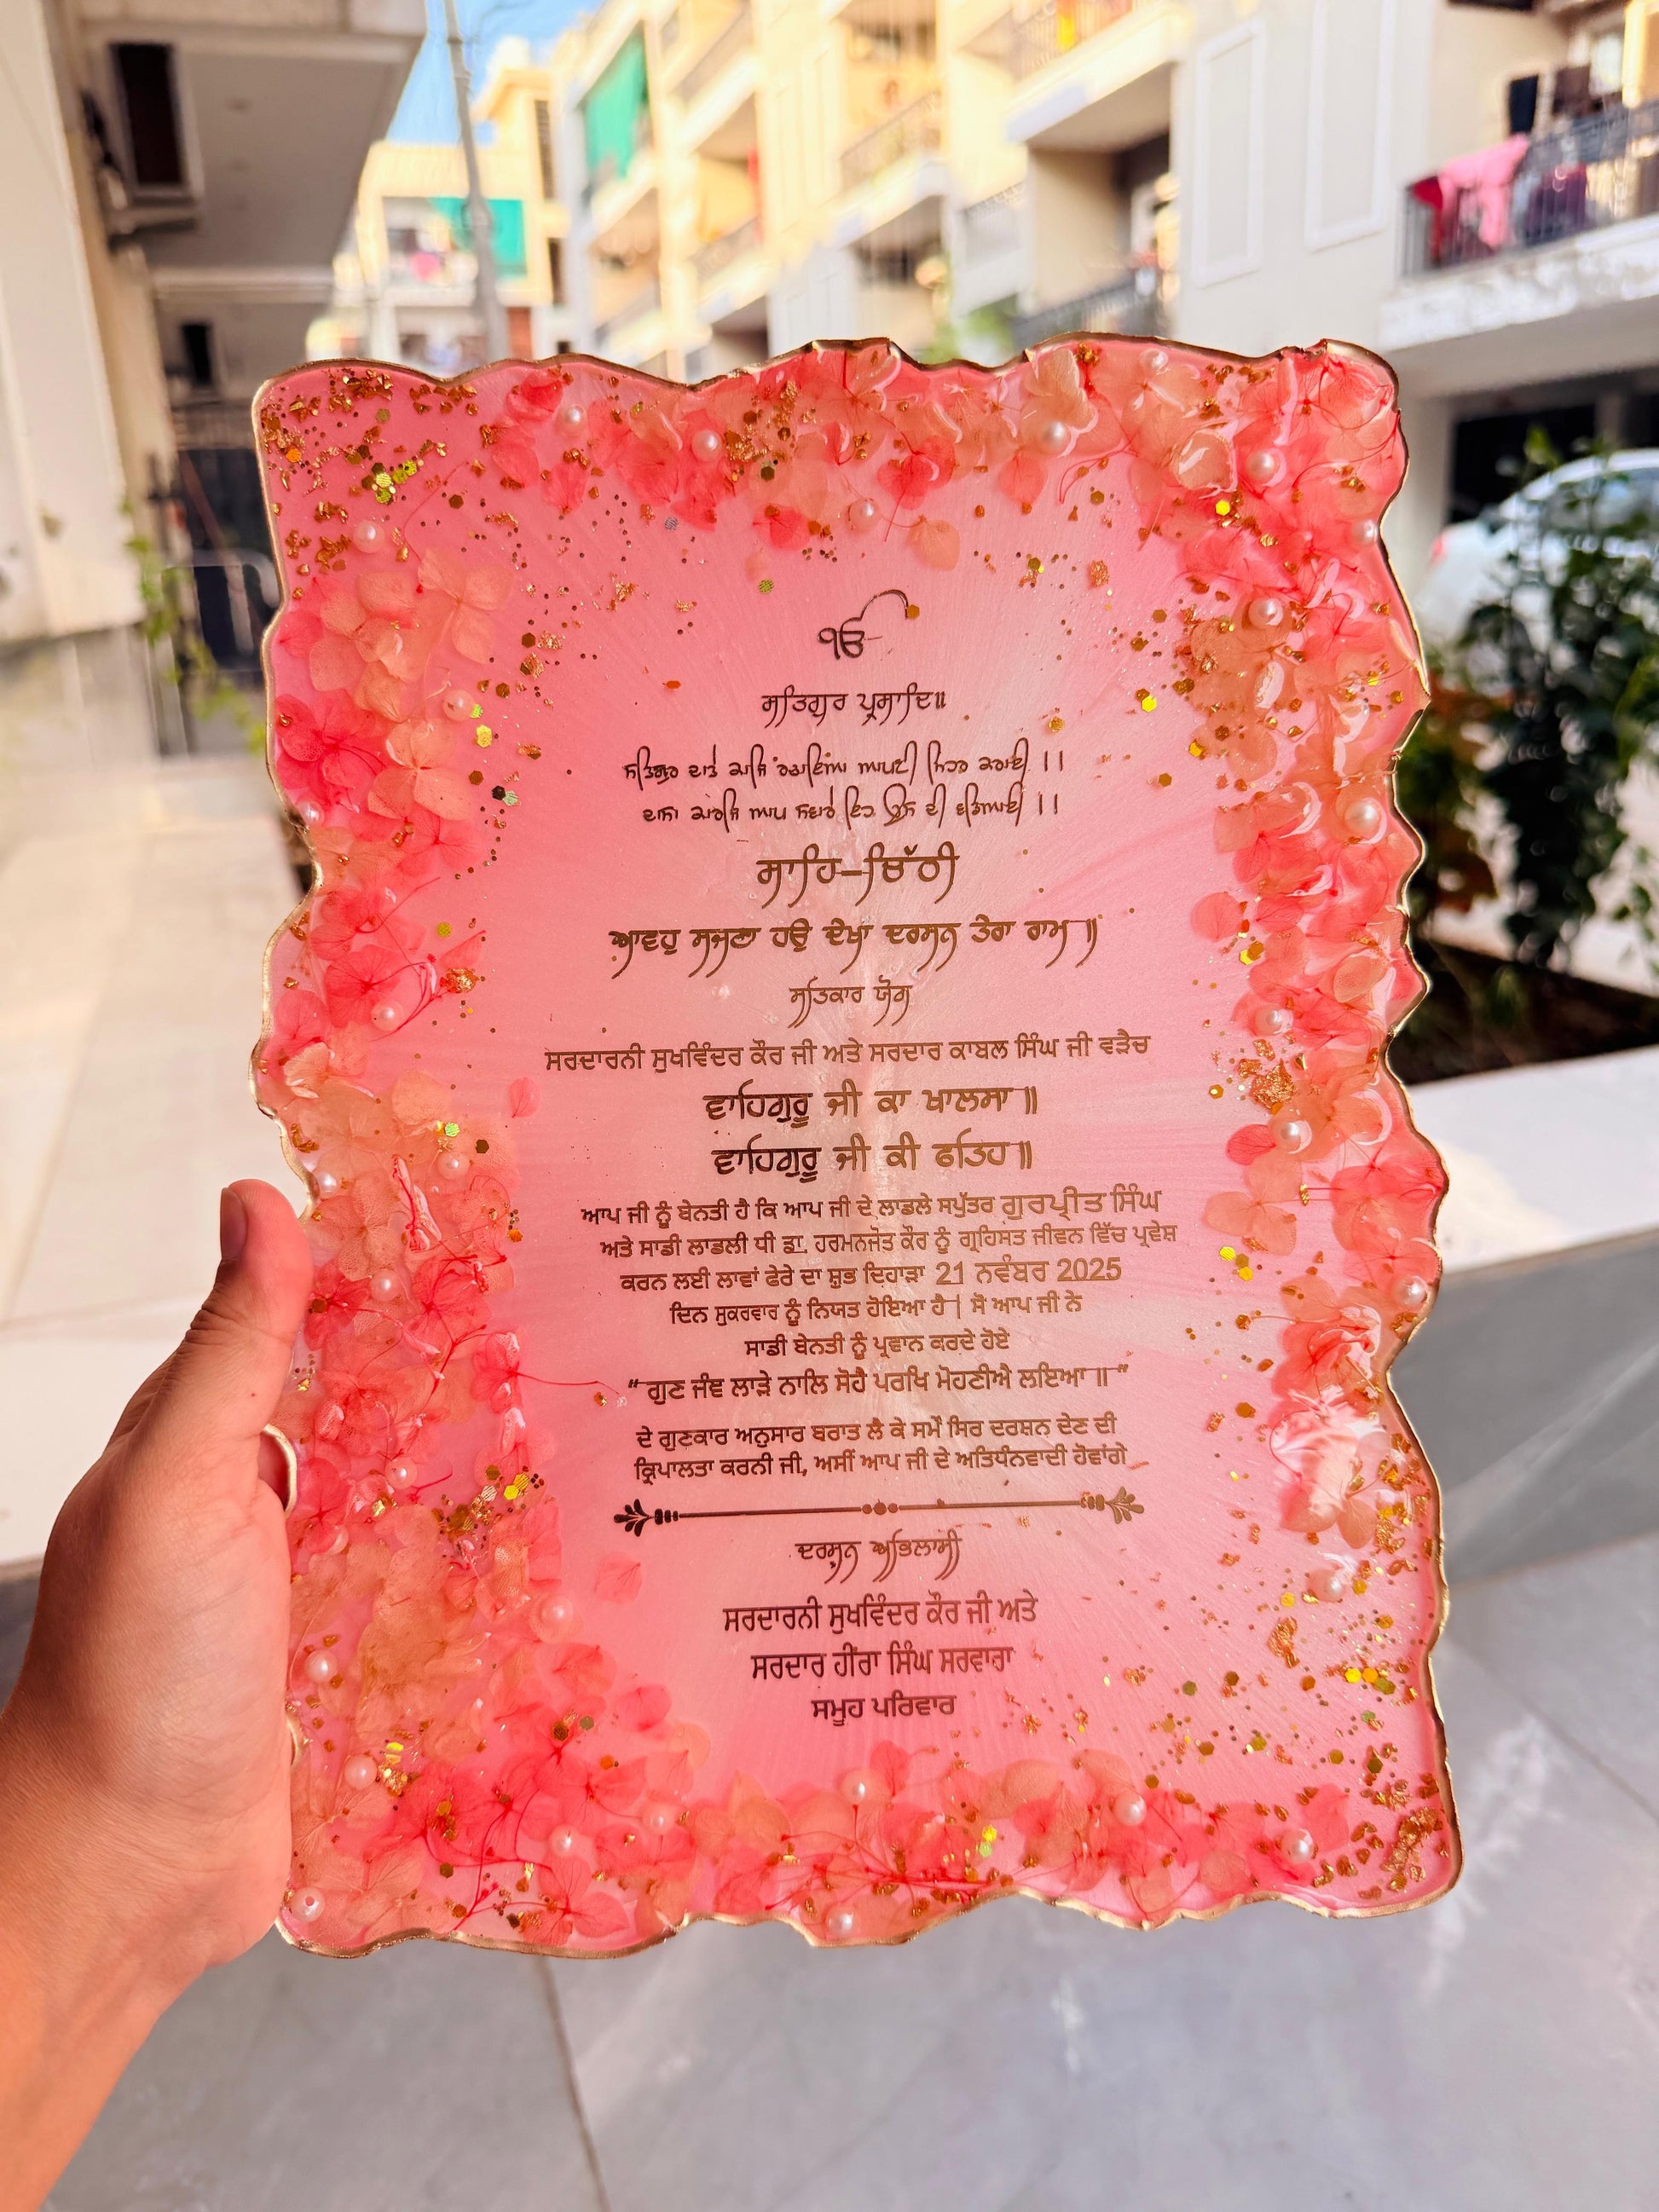 ੴ
ਸਤਿਗੁਰ ਪ੍ਰਸਾਦਿ॥
ਸਤਿਗੁਰ ਦਾਤੇ ਕਾਜ ਰਚਾਇਆ ਆਪਣੀ ਮਿਹਰ ਕਰਾਈ ।।
ਦਾਸਾ ਕਾਰਜ ਆਪ ਸਵਾਰੇ ਇਹ ਉਸ ਦੀ ਵਡਿਆਈ ।।
ਸਾਹਿ–ਚਿੱਠੀ
ਆਵਹੁ ਸਜਣਾ ਹਉ ਦੇਖਾ ਦਰਸਨੁ ਤੇਰਾ ਰਾਮ ॥
ਸਤਿਕਾਰ ਯੋਗ
ਸਰਦਾਰਨੀ ਸੁਖਵਿੰਦਰ ਕੌਰ ਜੀ ਅਤੇ ਸਰਦਾਰ ਕਾਬਲ ਸਿੰਘ ਜੀ ਵੜੈਚ
ਵਾਹਿਗੁਰੂ ਜੀ ਕਾ ਖਾਲਸਾ ॥
ਵਾਹਿਗੁਰੂ ਜੀ ਕੀ ਫਤਿਹ॥
ਆਪ ਜੀ ਨੂੰ ਬੇਨਤੀ ਹੈ ਕਿ ਆਪ ਜੀ ਦੇ ਲਾਡਲੇ ਸਪੁੱਤਰ ਗੁਰਪ੍ਰੀਤ ਸਿੰਘ
ਅਤੇ ਸਾਡੀ ਲਾਡਲੀ ਧੀ ਡਾ. ਹਰਮਨਜੋਤ ਕੌਰ ਨੂੰ ਗ੍ਰਹਿਸਤ ਜੀਵਨ ਵਿੱਚ ਪ੍ਰਵੇਸ਼
ਕਰਨ ਲਈ ਲਾਵਾਂ ਫੇਰੇ ਦਾ ਸ਼ੁਭ ਦਿਹਾੜਾ 21 ਨਵੰਬਰ 2025
ਦਿਨ ਸ਼ੁਕਰਵਾਰ ਨੂੰ ਨਿਯਤ ਹੋਇਆ ਹੈ | ਸੋ ਆਪ ਜੀ ਨੇ
ਸਾਡੀ ਬੇਨਤੀ ਨੂੰ ਪ੍ਰਵਾਨ ਕਰਦੇ ਹੋਏ
“ ਗੁਣ ਜੰਞ ਲਾੜੇ ਨਾਲਿ ਸੋਹੈ ਪਰਖਿ ਮੋਹਣੀਐ ਲਇਆ ॥ ”
ਦੇ ਗੁਣਕਾਰ ਅਨੁਸਾਰ ਬਰਾਤ ਲੈ ਕੇ ਸਮੇਂ ਸਿਰ ਦਰਸ਼ਨ ਦੇਣ ਦੀ
ਕ੍ਰਿਪਾਲਤਾ ਕਰਨੀ ਜੀ, ਅਸੀਂ ਆਪ ਜੀ ਦੇ ਅਤਿਧੰਨਵਾਦੀ ਹੋਵਾਂਗੇ
ਦਰਸ਼ਨ ਅਭਿਲਾਸ਼ੀ
ਸਰਦਾਰਨੀ ਸੁਖਵਿੰਦਰ ਕੌਰ ਜੀ ਅਤੇ
ਸਰਦਾਰ ਹੀਰਾ ਸਿੰਘ ਸਰਵਾਰਾ
ਸਮੂਹ ਪਰਿਵਾਰ